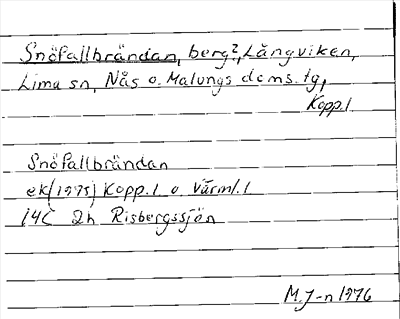 Snöfallbrändan, berg?, Långviken,
Lima sn, Nås o. Malungs doms. tg,
Kopp. l
Snöfallbrändan
ek (1975) Kopp. l o. Värml. l
14C 2h Risbergssjön
M. J-n 1976